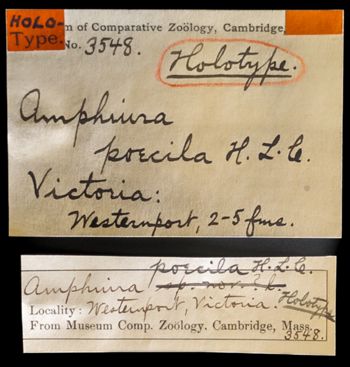 HOLO-
Type.
m of Comparative Zoölogy, Cambridge,
No. 3548.
Holotype.
Amphiura
poecila H. L. C.
Victoria:
Westernport, 2-5 fms.
poecila H. L. C.
Amphiura sp. nov.
Locality: Westernport, Victoria. Holotype
From Museum Comp. Zoölogy, Cambridge, Mass.
3548.